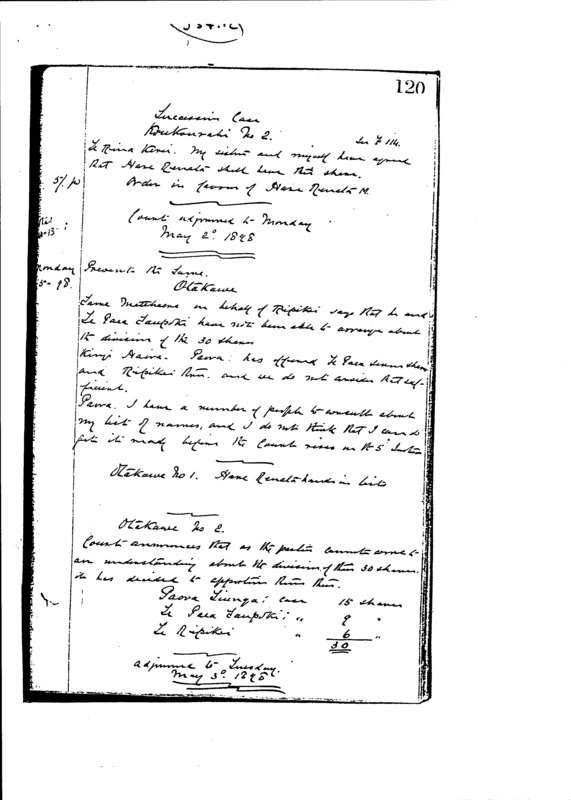 120
Succession Case
No 2. See F 114.
Te Rina Kerei. My sisters and myself have agreed
that Hare Reneta shall have this share.
5/ pd Order in favour of Hare Reneta M.
Court adjourned to Monday
May 2º 1898
Monday Present the Same.
5 - 98. Otakawe
on behalf of Ripikoi says that he and
Te Paea have not been able to arrange about
the division of the 30 shares
Kingi. Paora has offered Te Paea seven shares
and Ripikoi five. and we do not consider that suf-
ficient.
Paora. I have a number of people to consult about
my list of names, and I do not think that I can
get it ready before the Court rises on the 5
Otakawe No 1. Hare Reneta hands in lists
Otakawe No 2.
Court announces that as the parties cannot come to
an understanding about the division of their 30 shares.
it has decided to apportion them thus.
Paora case 15 shares
Te Paea " 9 "
Te Ripikoi " 6 "
30
adjourned to Tuesday.
May 3º 1898